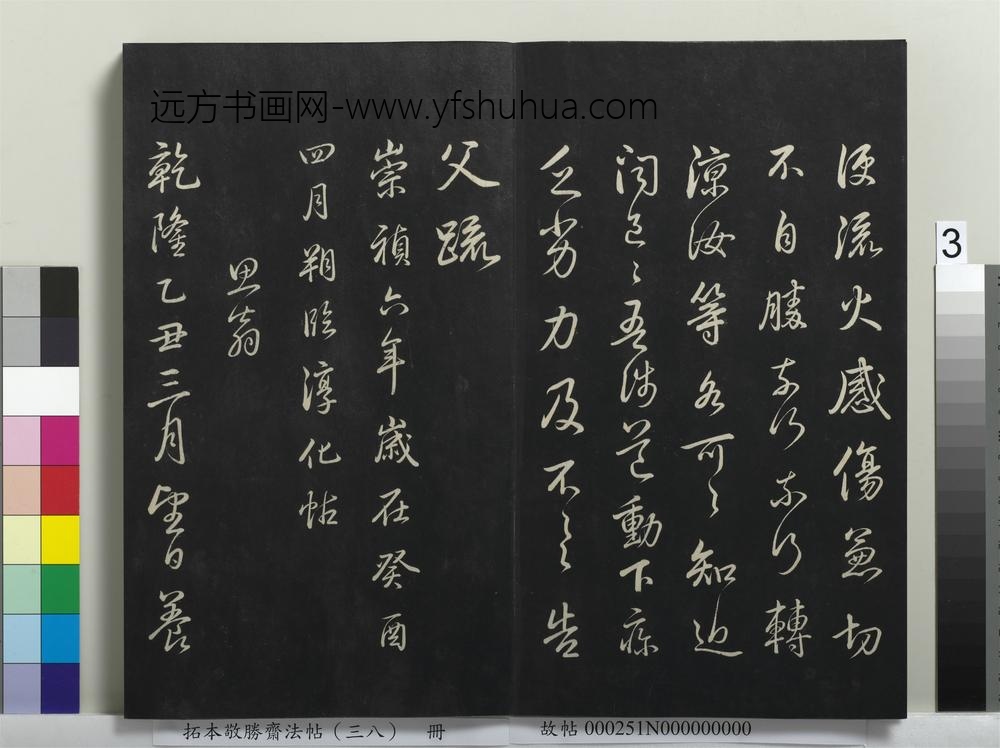 远方书画网-www.yfshuhua.com
便流火感傷兼切
不自勝奈何奈何轉
涼汝等各可可知近
問邑邑吾涉道動下痢
乏劣力及不具告
父疏
崇禎六年歲在癸酉
四月朔臨淳化帖
思翁
乾隆乙丑三月望日養
3
拓本敬勝齋法帖（三八） 冊
故帖 000251N000000000